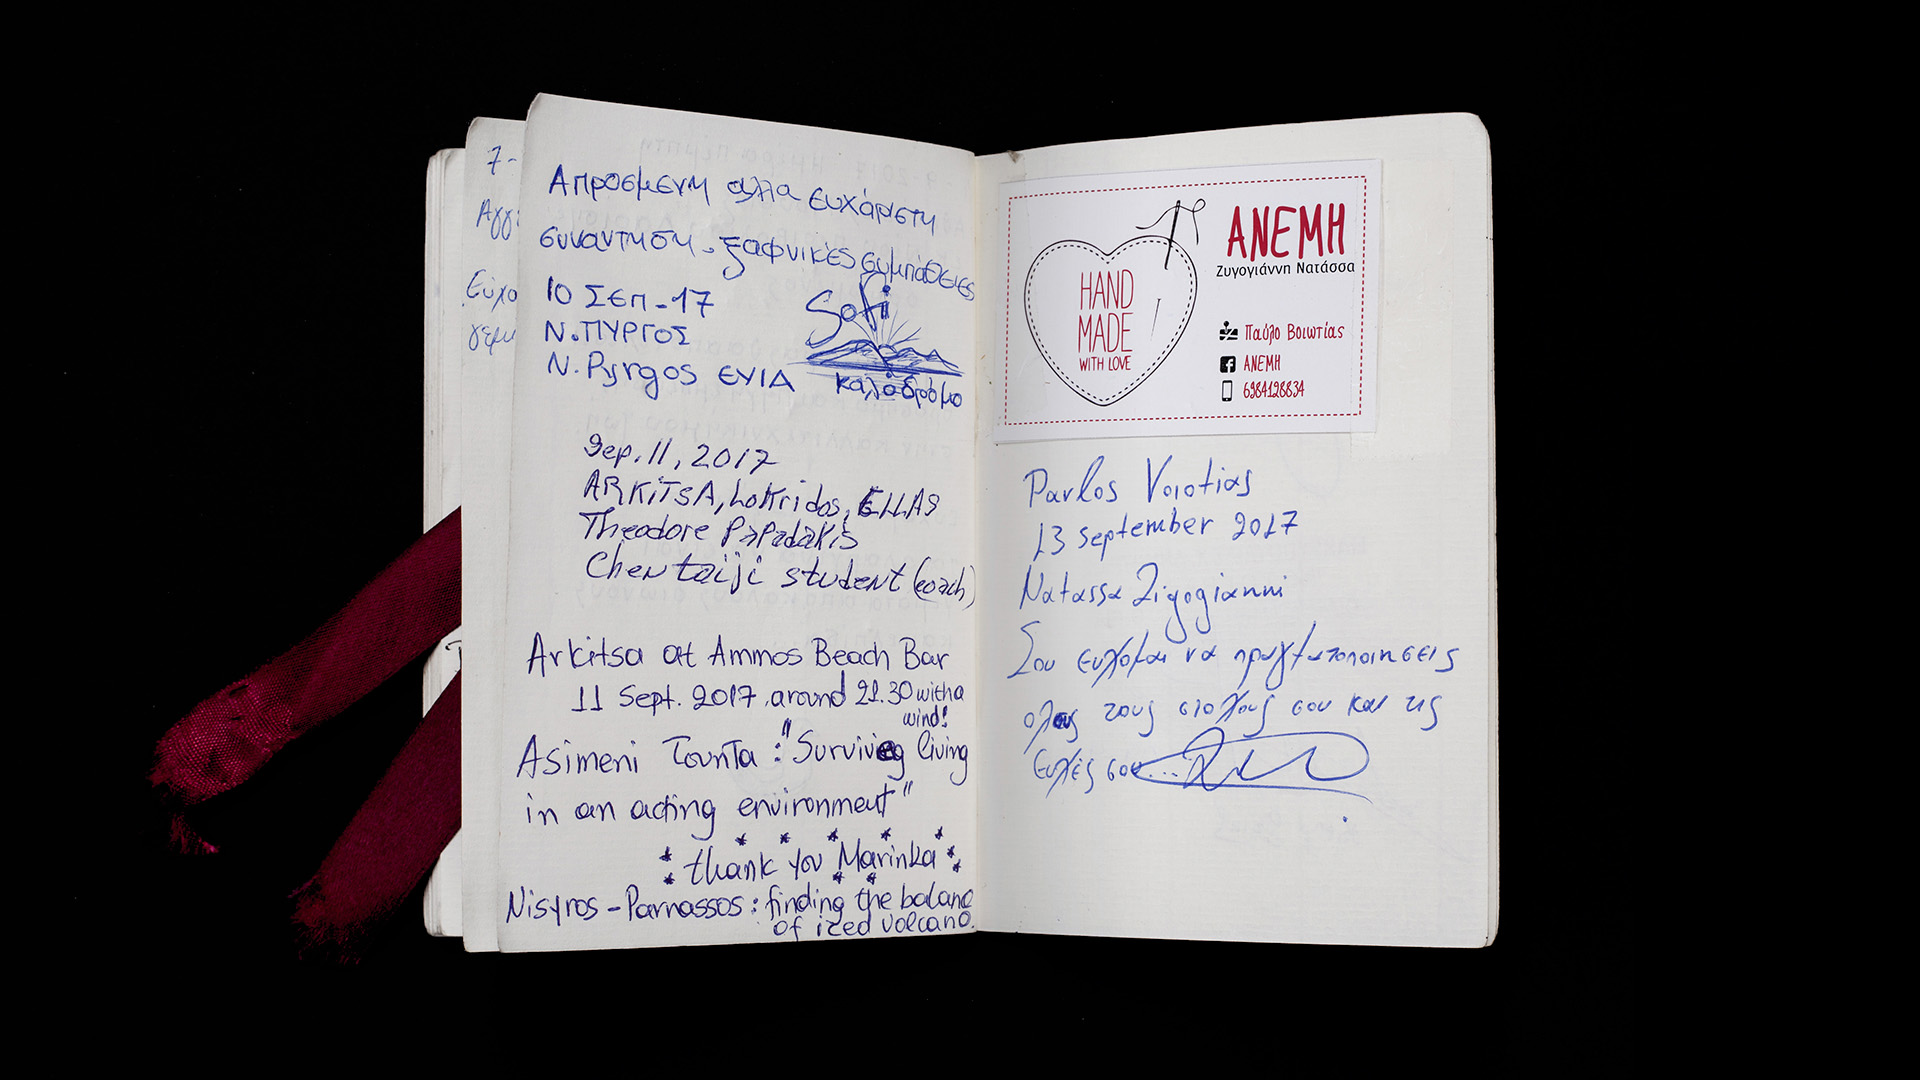 7-
Αγγ
Εύχο
γεμι
Απροσμενη αλλα ευχάριστη
συναντηση - ξαφνικές συμπάθειες
10 ΣΕΠ-17
Ν. ΠΥΡΓΟΣ
N. Pyrgos ΕΥΙΑ
Sofi
καλό δρόμο
Sep. 11, 2017
ARKiTSA, Lokridos, ELLAS
Theodore PaPadakis
Chen taiji student (coach)
Arkitsa at Ammos Beach Bar
11 Sept. 2017 around 21.30 with a
wind!
Asimeni Τουπτα : "Surviving living
in an acting environment"
thank you Marinka
Nisyros - Parnassos : finding the balance
of iced volcano.
HAND
MADE
WITH LOVE
ΑΝΕΜΗ
Ζυγογιάννη Νατάσσα
Παύλο Βοιωτίας
ΑΝΕΜΗ
6984128834
Pavlos Voiotias
13 september 2017
Natassa Zigogianni
Σου ευχομαι να πραγματοποιησεις
ολους τους στοχους σου και τις
Ευχές σου...